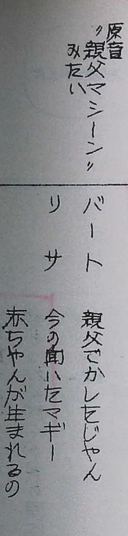 原音
〝親父マシーン〟
みたい
バート 親父でかしたじゃん
リサ 今の聞いたマギー
赤ちゃんが生まれるの